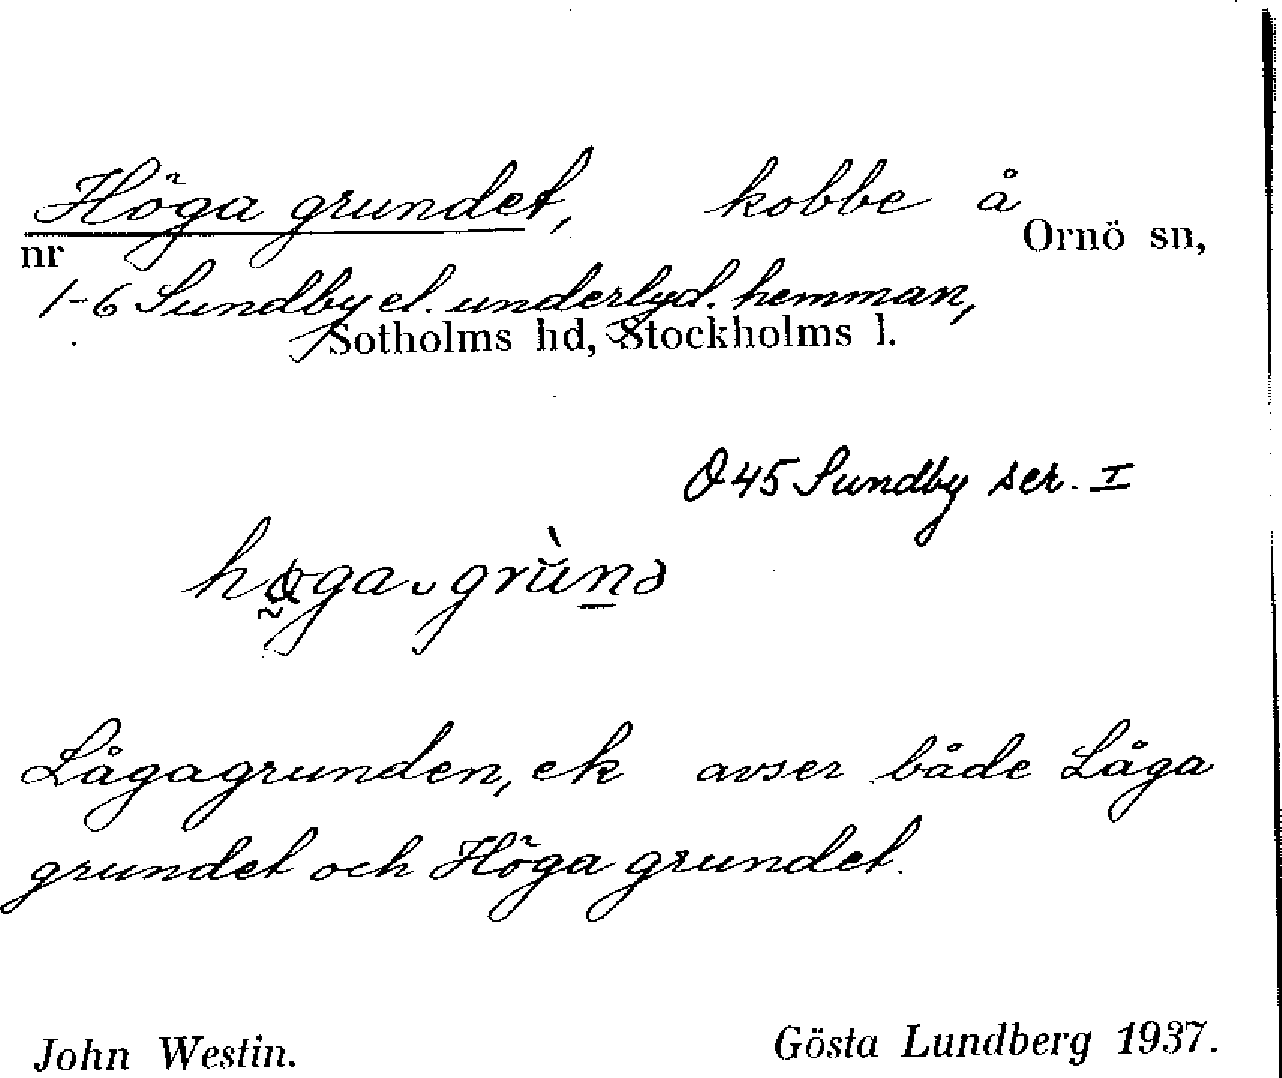 Höga grundet, kobbe å
Ornö sn,
nr
1-6 Sundby el. underlyd. hemman,
Sotholms hd, Stockholms l.
O 45 Sundby ser. I
Lågagrunden, ek avser både Låga
grundet och Höga grundet.
John Westin. Gösta Lundberg 1937.